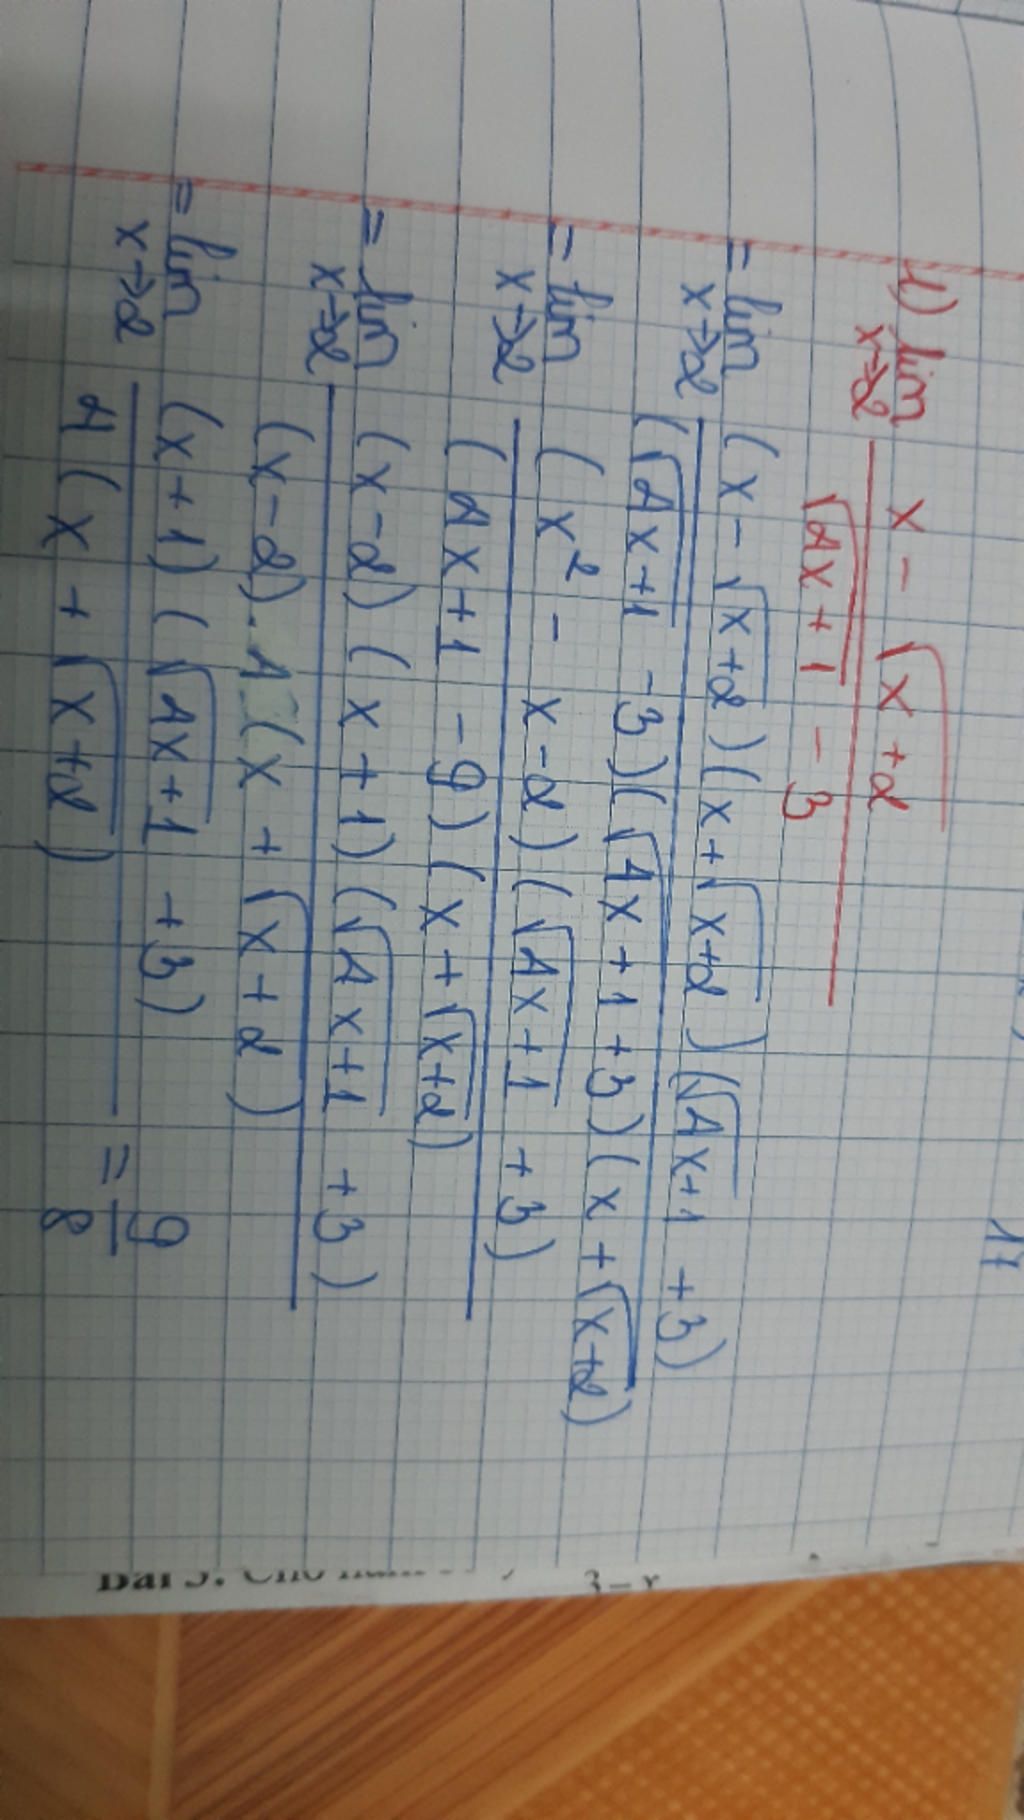 1) lim x→2 (x - √(x+2)) / (√(4x+1) - 3)
= lim x→2 (x - √(x+2))(x + √(x+2))(√(4x+1) + 3) / (√(4x+1) - 3)(√(4x+1) + 3)(x + √(x+2))
= lim x→2 (x² - x - 2)(√(4x+1) + 3) / (4x+1 - 9)(x + √(x+2))
= lim x→2 (x-2)(x+1)(√(4x+1) + 3) / (x-2).4(x + √(x+2))
= lim x→2 (x+1)(√(4x+1) + 3) / 4(x + √(x+2)) = 9/8
3-x